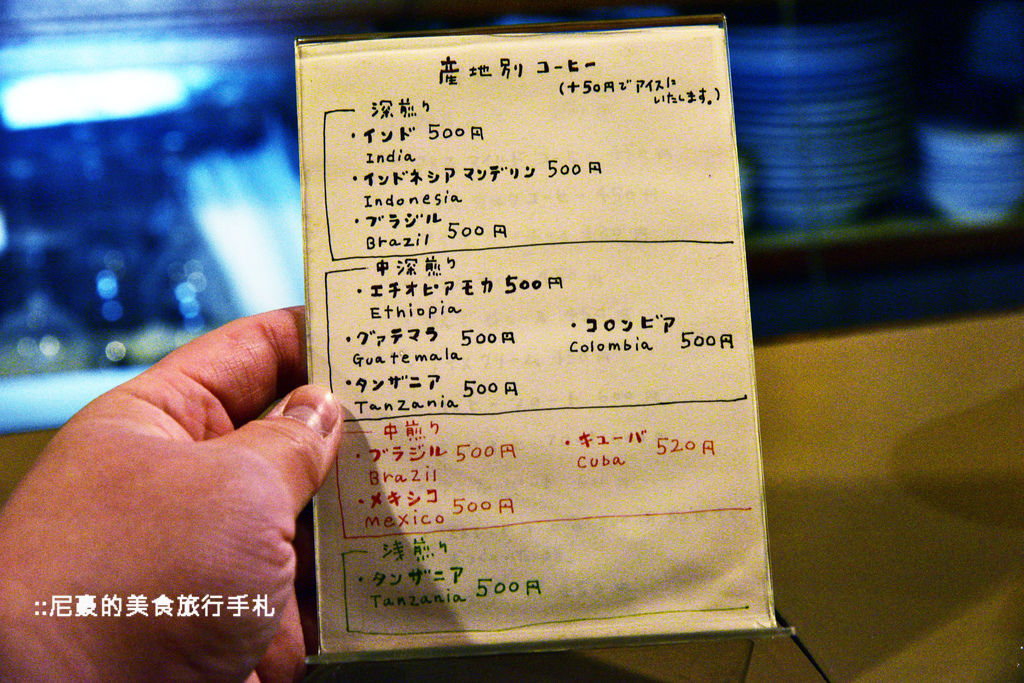 産地別 コーヒー
(+50円でアイスに
いたします。)
深煎り
・インド 500円
India
・インドネシア マンデリン 500円
Indonesia
・ブラジル 500円
Brazil
中深煎り
・エチオピアモカ 500円
Ethiopia
・グァテマラ 500円
Guatemala
・コロンビア 500円
Colombia
・タンザニア 500円
Tanzania
中煎り
・ブラジル 500円
Brazil
・キューバ 520円
Cuba
・メキシコ 500円
mexico
浅煎り
・タンザニア 500円
Tanzania
::尼豪的美食旅行手札